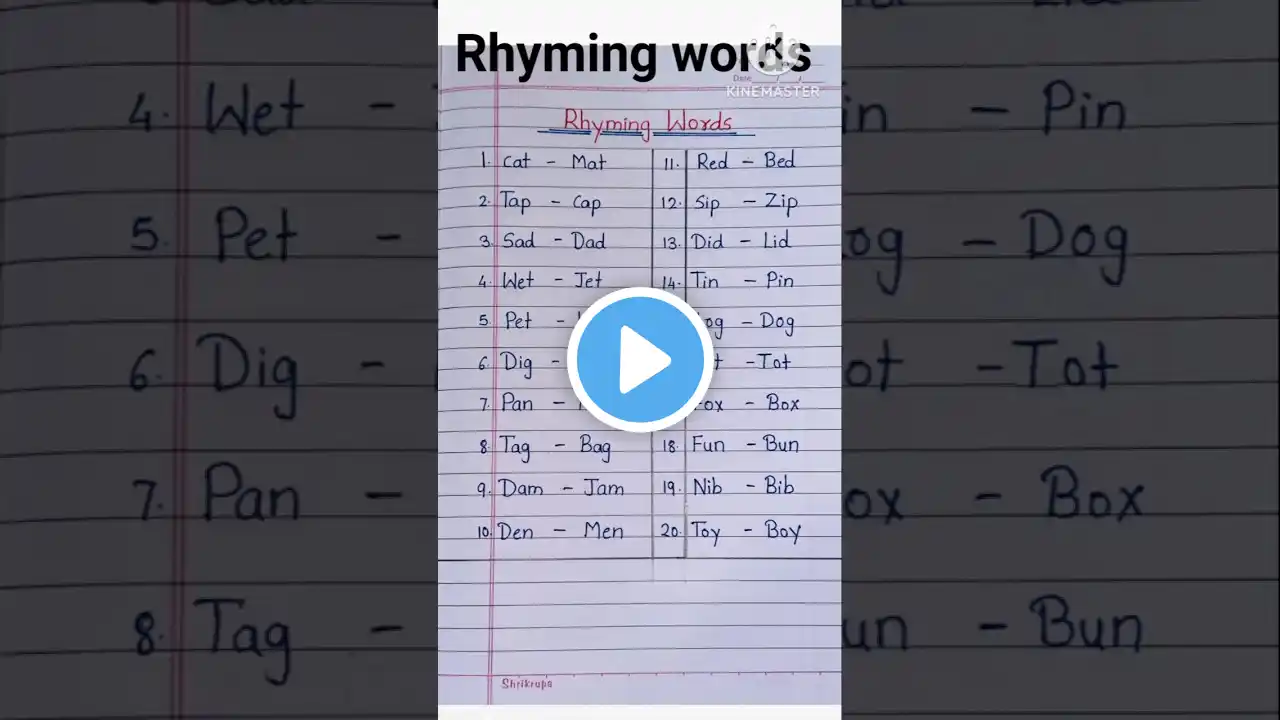 Rhyming words
KINEMASTER
Date
Rhyming Words
1. Cat - Mat
2. Tap - Cap
3. Sad - Dad
4. Wet - Jet
5. Pet -
6. Dig -
7. Pan -
8. Tag - Bag
9. Dam - Jam
10. Den - Men
11. Red - Bed
12. Sip - Zip
13. Did - Lid
14. Tin - Pin
- Dog
- Tot
- Box
18. Fun - Bun
19. Nib - Bib
20. Toy - Boy
Shrikrupa
4. Wet -
5. Pet -
6. Dig -
7. Pan -
8. Tag -
- Pin
- Dog
- Tot
- Box
- Bun